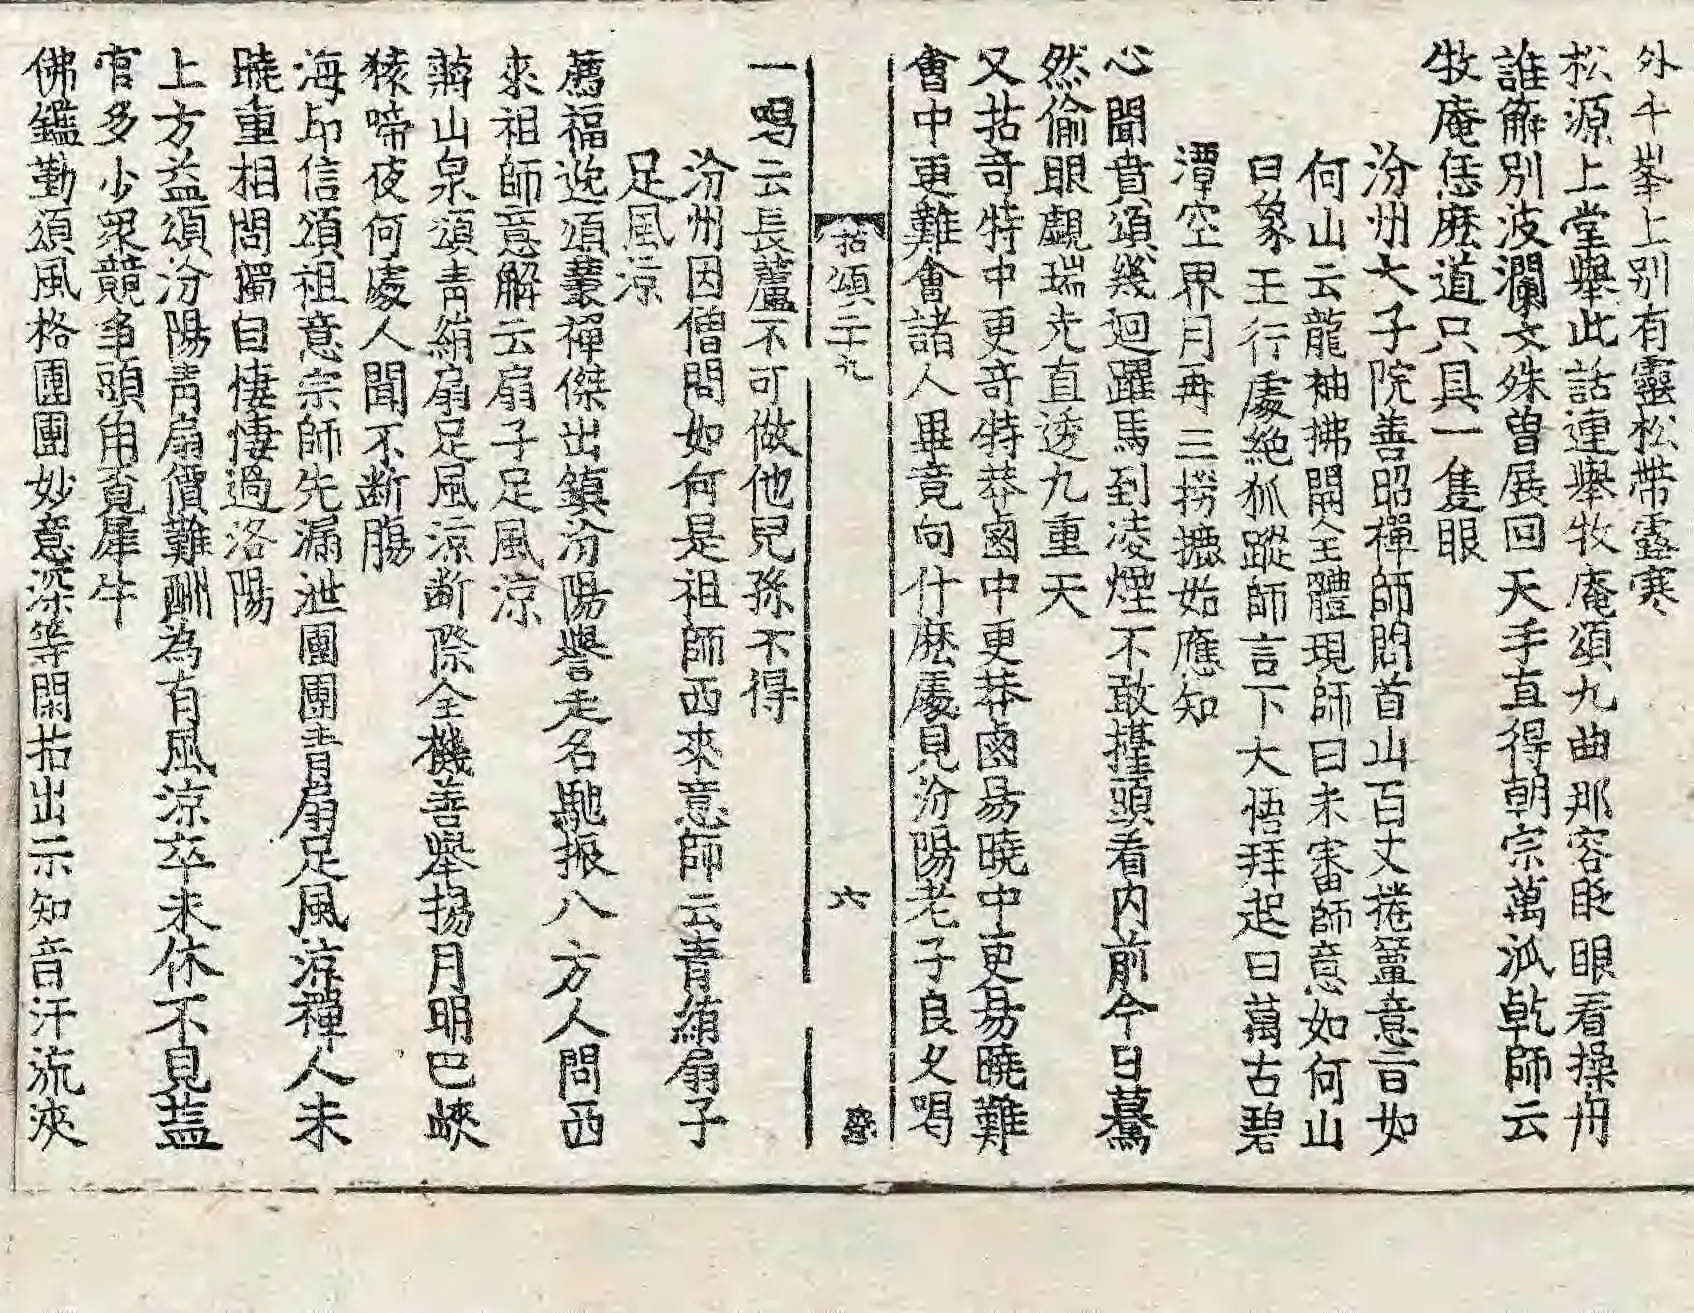 外千峯上別有靈松帶露寒
松源上堂舉此話連舉牧庵頌九曲那容眨眼看操舟
誰解別波瀾文殊曾展回天手直得朝宗萬派乾師云
牧庵恁麽道只具一隻眼
汾州大子院善昭禪師問首山百丈捲簟意旨如
何山云龍袖拂開全體現師曰未審師意如何山
曰象王行處絕狐蹤師言下大悟拜起曰萬古碧
潭空界月再三撈摝始應知
心聞賁頌幾迴躍馬到凌煙不敢擡頭看内前今日驀
然偷眼覷瑞光直透九重天
又拈奇特中更奇特莽鹵中更莽鹵易曉中更易曉難
會中更難會諸人畢竟向什麽處見汾陽老子良久喝
拈頌二十九
六
一喝云長蘆不可做他兒孫不得
汾州因僧問如何是祖師西來意師云青絹扇子
足風涼
薦福逸頌叢禪傑出鎮汾陽譽走名馳振八方人問西
來祖師意解云扇子足風涼
蔣山泉頌青絹扇足風涼断際全機善舉揚月明巴峽
猿啼夜何處人聞不断腸
海印信頌祖意宗師先漏泄團團青扇足風涼禪人未
曉重相問獨自悽悽過洛陽
上方益頌汾陽青扇價難酬為有風涼卒未休不見葢
官多少衆競爭頭角覓犀牛
佛鑑勤頌風格團團妙意深等閑拈出示知音汗流浹